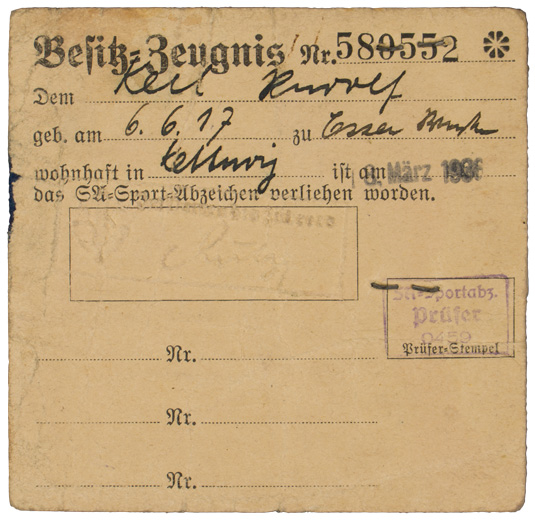 Besitz-Zeugnis Nr. 580552
Dem Keil Rudolf
geb. am 6. 6. 17 zu Essen
wohnhaft in Kettwig ist am März 1936
das SA-Sport-Abzeichen verliehen worden.
SA-Sportabz.
Prüfer
0459
Prüfer-Stempel
Nr.
Nr.
Nr.